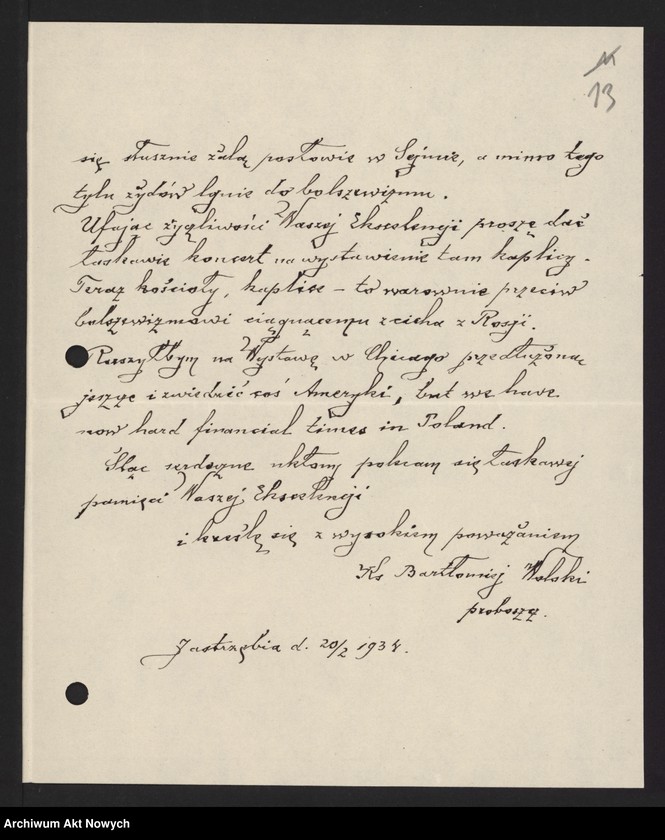 13
się słusznie żalą posłowie w Sejmie, a mimo tego
tylu żydów lgnie do bolszewizmu.
Ufając życzliwości Waszej Ekscelencji proszę dać
łaskawie koncert na wystawienie tam kaplicy.
Teraz kościoły, kaplice – to warownie przeciw
bolszewizmowi ciągnącemu z cicha z Rosji.
Ruszyłbym na Wystawę w Chicago przedłużoną
jeszcze i zwiedzić coś Ameryki, but we have
now hard financial times in Poland.
Śląc serdeczne ukłony polecam się łaskawej
pamięci Waszej Ekscelencji
i kreślę się z wysokiem poważaniem
Ks Bartłomiej Wolski
proboszcz.
Jastrzębia d. 20/2 1934.
Archiwum Akt Nowych